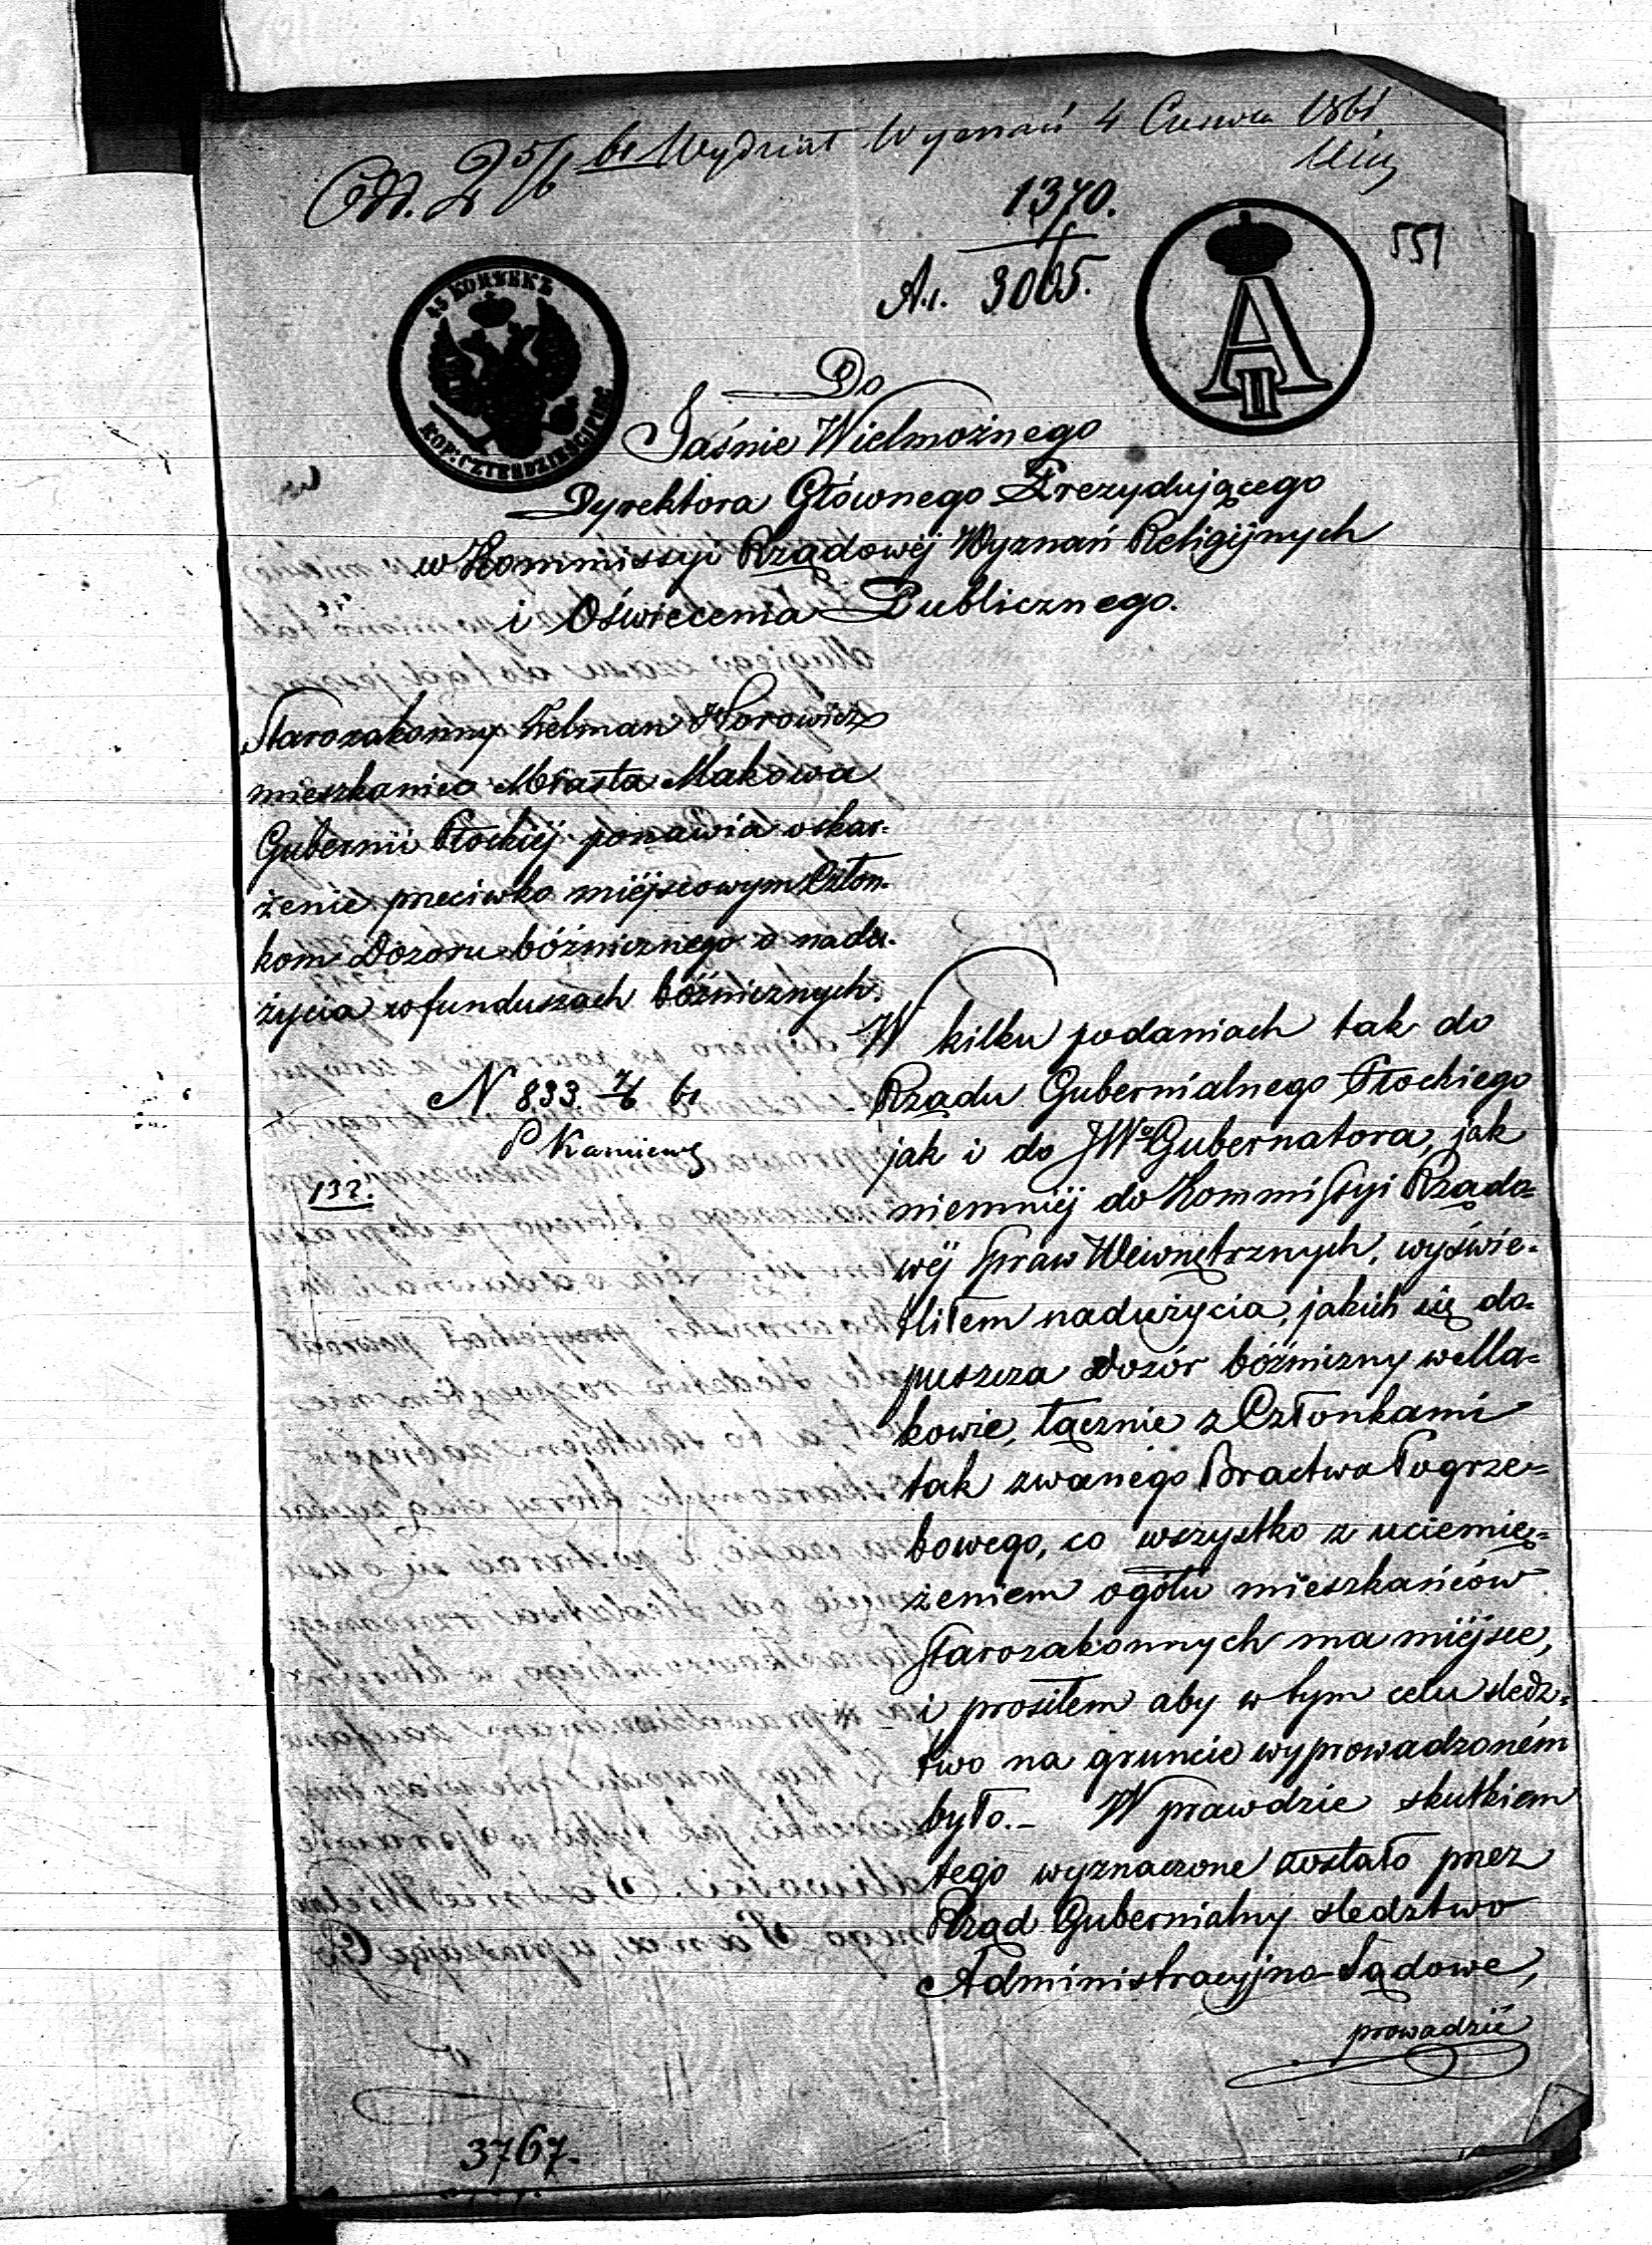 Wydział Wyznań 4 Czerwca 1861
1370.
A.1. 3005.
551
45 KOPѢEKЪ
KOP: CZTERDZIEŚCI PIĘĆ
A II
Do
Jaśnie Wielmożnego
Dyrektora Głównego Prezydującego
w Kommissyi Rządowéj Wyznań Religijnych
i Oświecenia Publicznego.
Starozakonny Zelman Horowicz
mieszkaniec Miasta Makowa
Gubernii Płockiéj ponawia oskar-
żenie przeciwko miéjscowym Człon-
kom Dozoru bóżnicznego o nadu-
życia w funduszach bóżnicznych.
N 833 7/6 61
132.
W kilku podaniach tak do
Rządu Gubernialnego Płockiego
jak i do JWo Gubernatora, jak
niemniéj do Kommissyi Rządo-
wéj Spraw Wewnętrznych, wyświe-
tliłem nadużycia, jakich się do-
puszcza Dozór bóżniczny w Ma-
kowie, łącznie z Członkami
tak zwanego Bractwa Pogrze-
bowego, co wszystko z uciemię-
żeniem ogółu mieszkańców
Starozakonnych ma miéjsce,
i prosiłem aby w tym celu śledz-
two na gruncie wyprowadzoném
było.- W prawdzie skutkiem
tego wyznaczone zostało przez
Rząd Gubernialny śledztwo
Administracyjno-Sądowe,
prowadzić
3767.